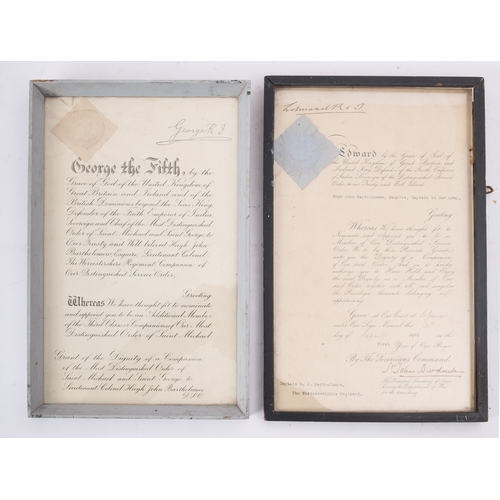 George R I
George the Fifth, by the
Grace of God of the United Kingdom of
Great Britain and Ireland and of the
British Dominions beyond the Seas King,
Defender of the Faith, Emperor of India,
Sovereign and Chief of the Most Distinguished
Order of Saint Michael and Saint George to
Our Trusty and Well beloved Hugh John
Bartholomew Esquire, Lieutenant Colonel
The Worcestershire Regiment, Companion of
Our Distinguished Service Order,
Greeting
Whereas We have thought fit to nominate
and appoint you to be an Additional Member
of the Third Class or Companions of Our Most
Distinguished Order of Saint Michael
Grant of the Dignity of a Companion
of the Most Distinguished Order of
Saint Michael and Saint George to
Lieutenant Colonel Hugh John Bartholomew
D.S.O.
Edward R & I
Edward by the Grace of God of
the United Kingdom of Great Britain and
Ireland, King, Defender of the Faith, Emperor
Hugh John Bartholomew, Esquire, Captain in Our Army,
Greeting
Whereas We have thought fit to
Nominate and Appoint you to be a
Member of Our Distinguished Service
Order
you the Dignity of a Companion
of Our said Order
authorize you to Have Hold and Enjoy
the said Dignity as a Member of Our said
Order, together with all and singular
the Privileges thereunto belonging or
appertaining
Given at Our Court at St. James's
under Our Sign Manual
day of
in the
First Year of Our Reign
By The Sovereign's Command.
St John Brodrick
Captain H. J. Bartholomew,
The Worcestershire Regiment.